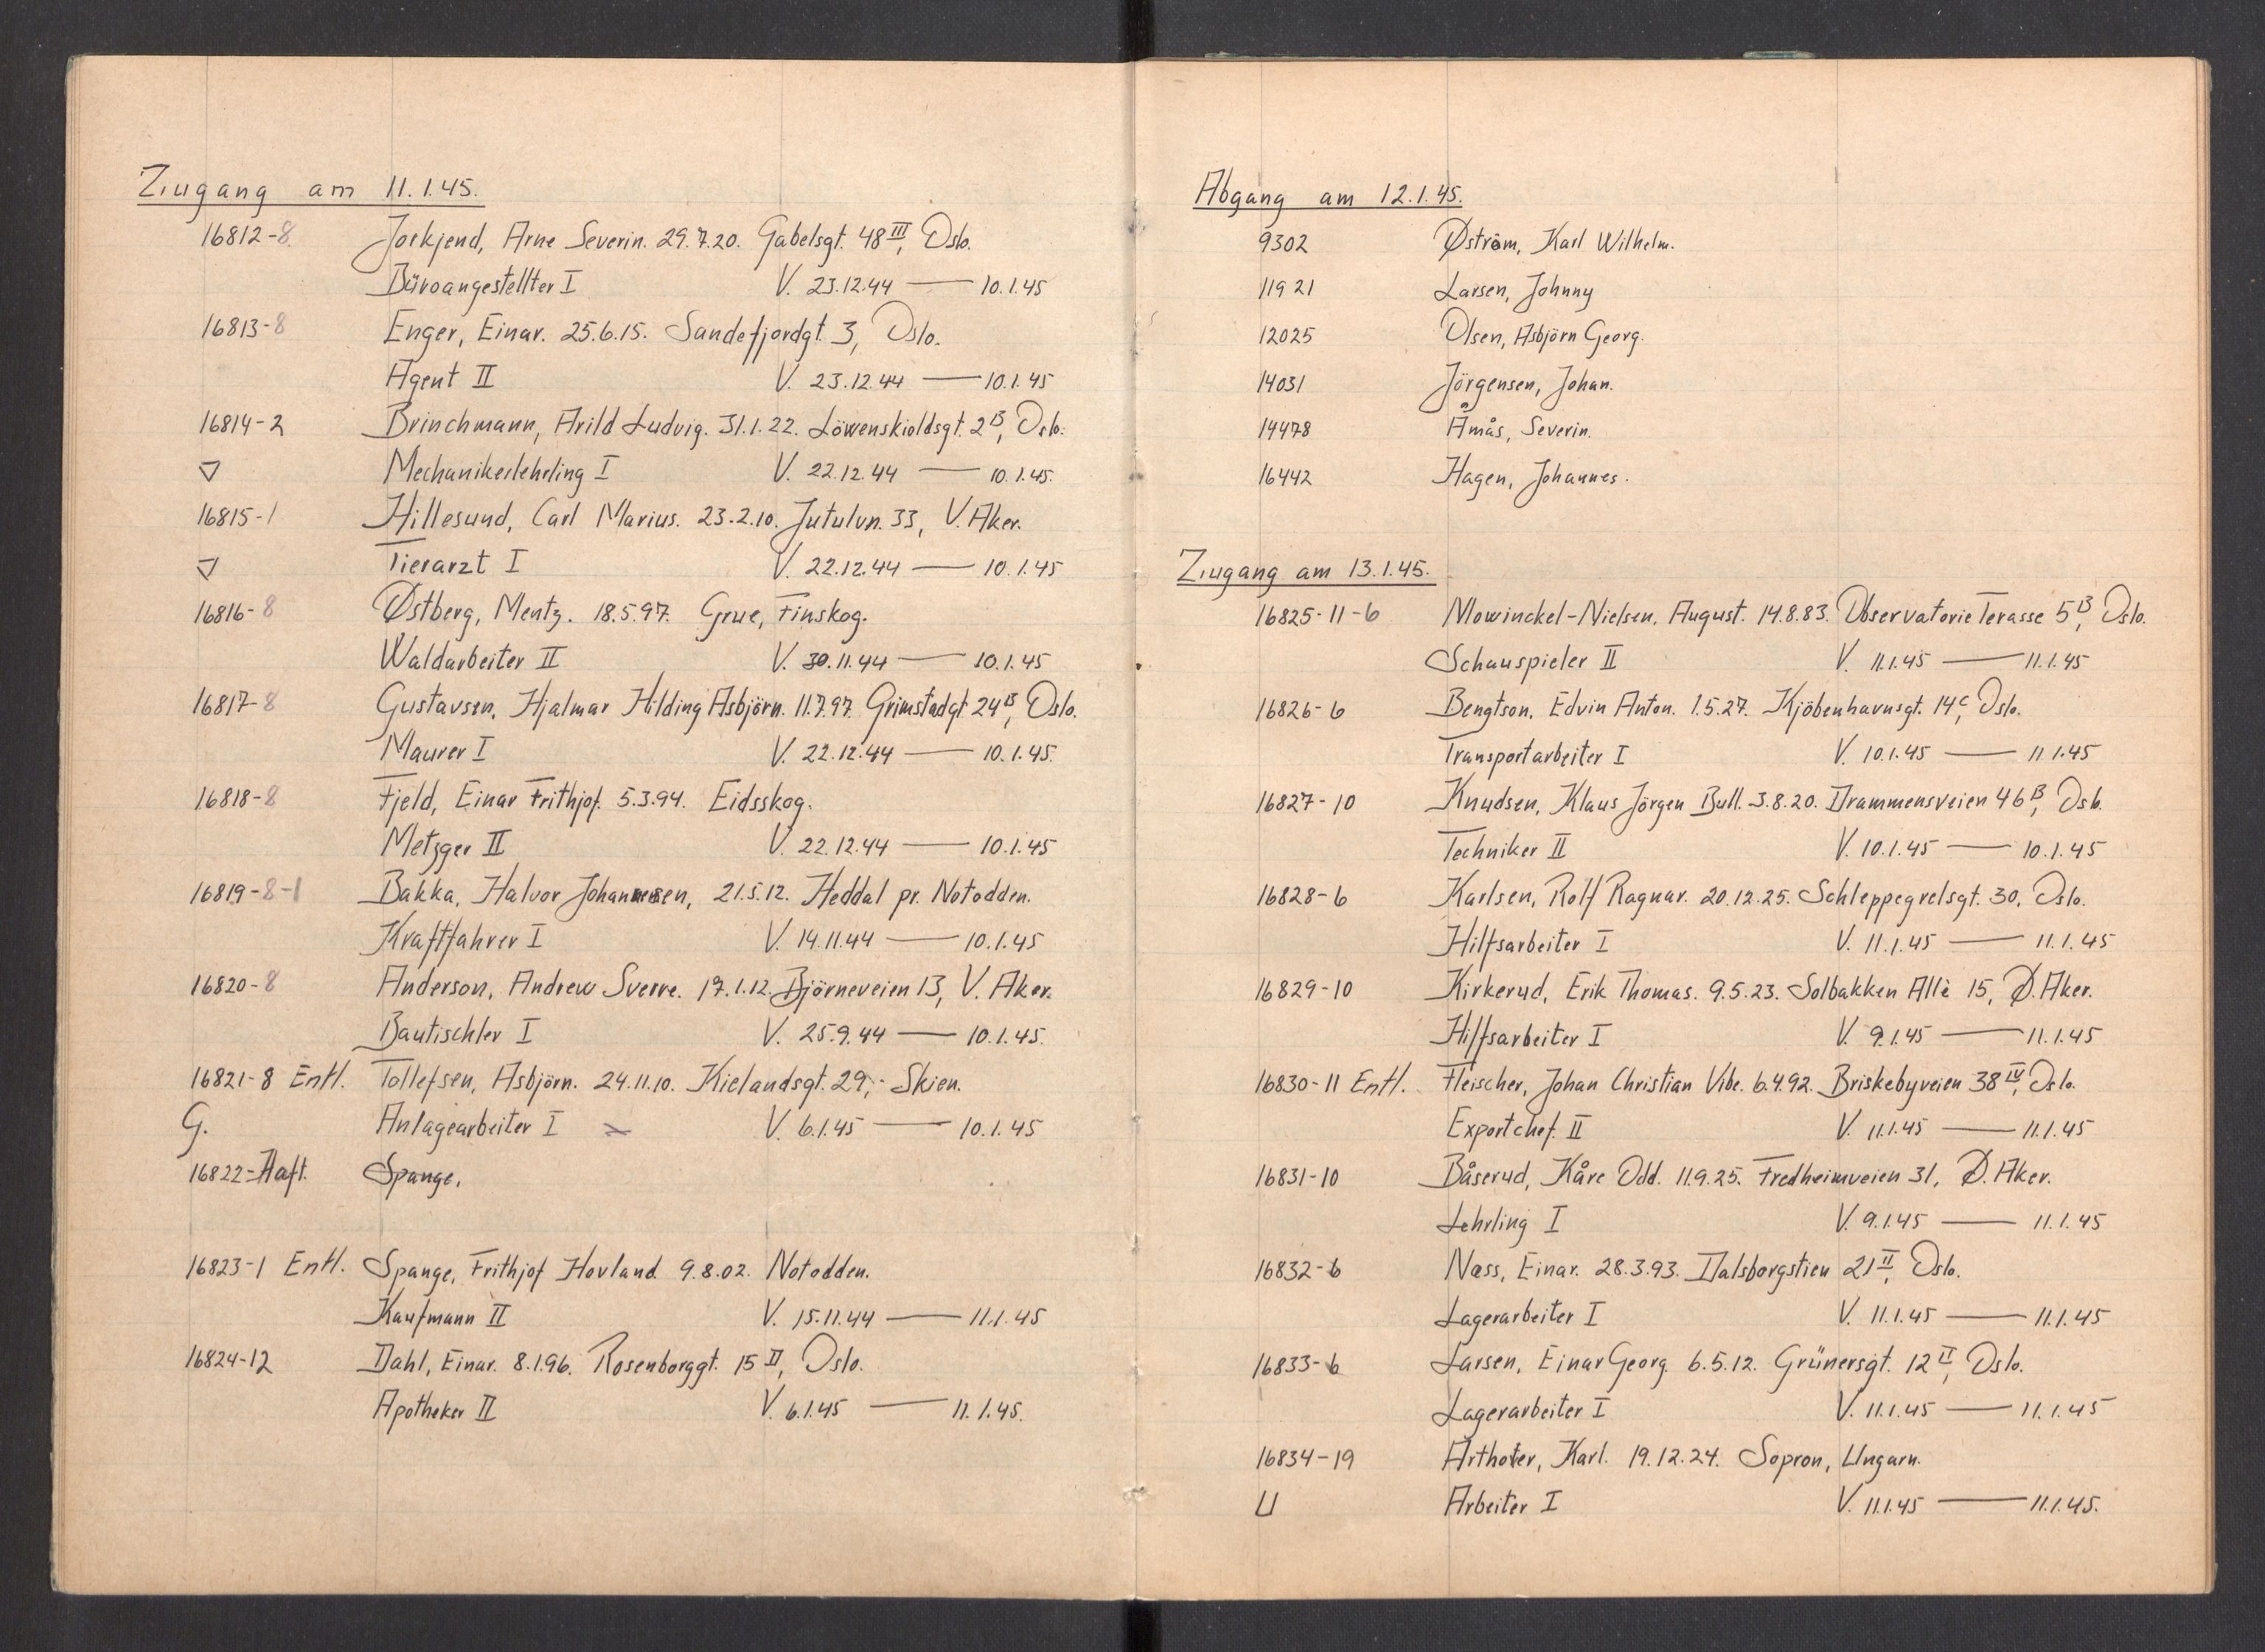 Zugang am 11.1.45.
16812-8 Jorkjend, Arne Severin. 29.7.20. Gabelsgt. 48 III, Oslo.
Büroangestellter I V. 23.12.44 — 10.1.45
16813-8 Enger, Einar. 25.6.15. Sandefjordgt. 3, Oslo.
Agent II V. 23.12.44 — 10.1.45
16814-2 Brinchmann, Arild Ludvig. 31.1.22. Löwenskioldsgt. 2B, Oslo.
▽ Mechanikerlehrling I V. 22.12.44 — 10.1.45.
16815-1 Hillesund, Carl Marius. 23.2.10. Jutulvn. 33, V. Aker.
▽ Tierarzt I V. 22.12.44 — 10.1.45
16816-8 Østberg, Mentz. 18.5.97. Grue, Finskog.
Waldarbeiter II V. 30.11.44 — 10.1.45
16817-8 Gustavsen, Hjalmar Hilding Asbjörn. 11.7.97. Grimstadgt. 24B, Oslo.
Maurer I V. 22.12.44 — 10.1.45.
16818-8 Fjeld, Einar Frithjof. 5.3.94. Eidsskog.
Metzger II V. 22.12.44 — 10.1.45
16819-8-1 Bakka, Halvor Johannesen, 21.5.12. Heddal pr. Notodden.
Kraftfahrer I V. 14.11.44 — 10.1.45
16820-8 Anderson, Andrew Sverre. 17.1.12. Björneveien 13, V. Aker.
Bautischler I V. 25.9.44 — 10.1.45.
16821-8 Entl. Tollefsen, Asbjörn. 24.11.10. Kielandsgt. 29, Skien.
G. Anlagearbeiter I V. 6.1.45 — 10.1.45
16822-Haft. Spange.
16823-1 Entl. Spange, Frithjof Hovland. 9.8.02. Notodden.
Kaufmann II V. 15.11.44 — 11.1.45
16824-12 Dahl, Einar. 8.1.96. Rosenborggt. 15 II, Oslo.
Apotheker II V. 6.1.45 — 11.1.45.
Abgang am 12.1.45.
9302 Øström, Karl Wilhelm.
11921 Larsen, Johnny
12025 Olsen, Asbjörn Georg.
14031 Jörgensen, Johan.
14478 Åmås, Severin.
16442 Hagen, Johannes.
Zugang am 13.1.45.
16825-11-6 Mowinckel-Nielsen, August. 14.8.83. Observatorie Terasse 5B, Oslo.
Schauspieler II V. 11.1.45 — 11.1.45
16826-6 Bengtson, Edvin Anton. 1.5.27. Kjöbenhavnsgt. 14c, Oslo.
Transportarbeiter I V. 10.1.45 — 11.1.45
16827-10 Knudsen, Klaus Jörgen Bull. 3.8.20. Drammensveien 46B, Oslo.
Techniker II V. 10.1.45 — 10.1.45
16828-6 Karlsen, Rolf Ragnar. 20.12.25. Schleppegrelsgt. 30, Oslo.
Hilfsarbeiter I V. 11.1.45 — 11.1.45
16829-10 Kirkerud, Erik Thomas. 9.5.23. Solbakken Allè 15, Ø. Aker.
Hilfsarbeiter I V. 9.1.45 — 11.1.45
16830-11 Entl. Fleischer, Johan Christian Vibe. 6.4.92. Briskebyveien 38 IV, Oslo.
Exportchef. II V. 11.1.45 — 11.1.45
16831-10 Båserud, Kåre Odd. 11.9.25. Fredheimveien 31, Ø. Aker.
Lehrling I V. 9.1.45 — 11.1.45
16832-6 Næss, Einar. 28.3.93. Dalsborgstien 21 II, Oslo.
Lagerarbeiter I V. 11.1.45 — 11.1.45
16833-6 Larsen, Einar Georg. 6.5.12. Grünersgt. 12 II, Oslo.
Lagerarbeiter I V. 11.1.45 — 11.1.45
16834-19 Arthofer, Karl. 19.12.24. Sopron, Ungarn.
U Arbeiter I V. 11.1.45 — 11.1.45.